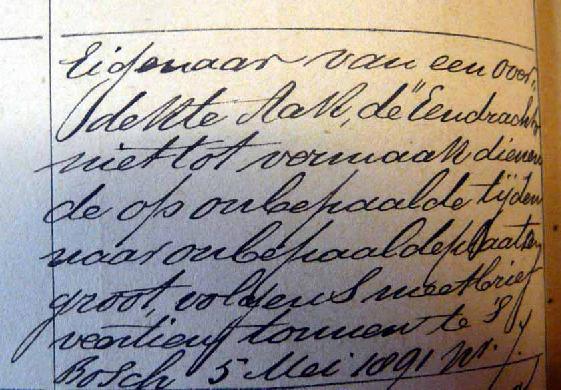 Eigenaar van een over-
dekte Aak, de "Eendracht"
niet tot vermaak dienen
de op onbepaalde tijden
naar onbepaalde plaatsen
groot, volgens meetbrief
veertien tonnen te 's
Bosch 5 Mei 1891 Nr.